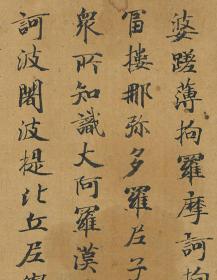 婆蹉薄拘羅摩訶拘
冨樓那弥多羅尼子
衆所知識大阿羅漢
訶波闍波提比丘尼與